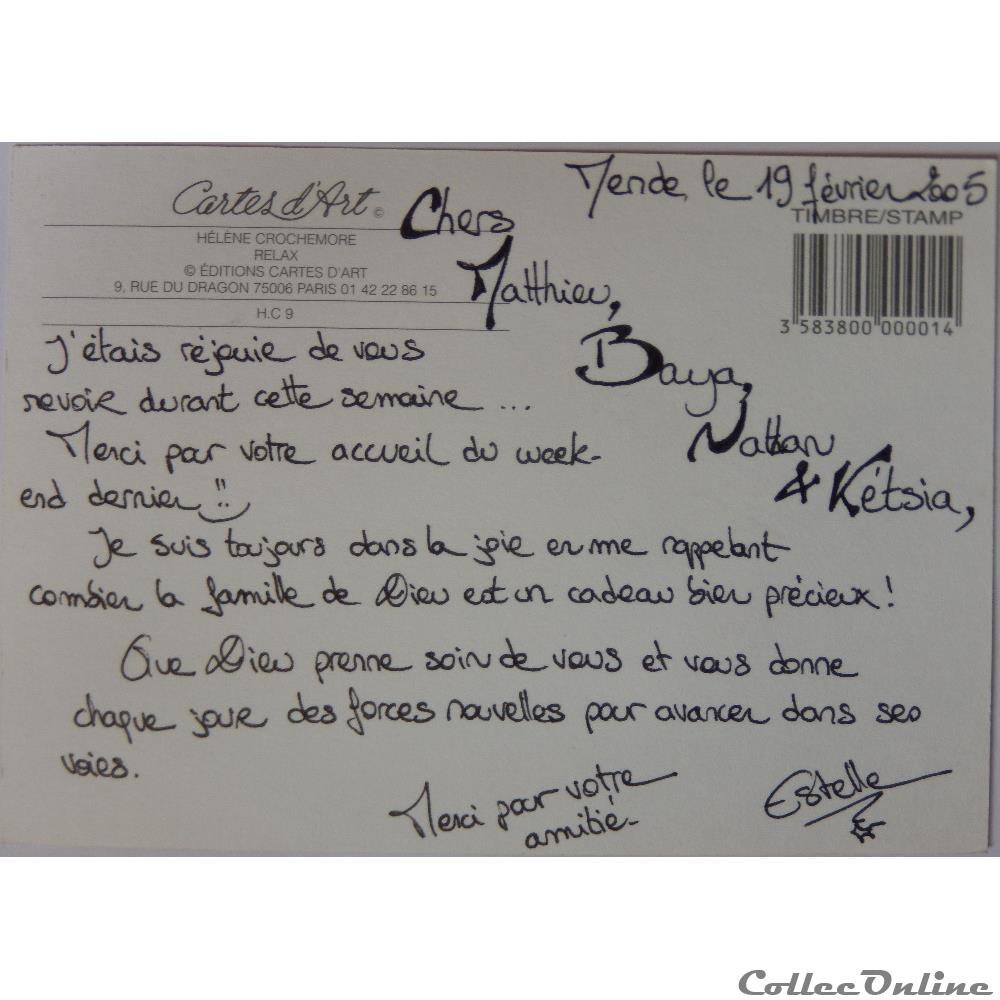 Mende, le 19 février 2005
Cartes d'Art ©
HÉLÈNE CROCHEMORE
RELAX
© ÉDITIONS CARTES D'ART
9, RUE DU DRAGON 75006 PARIS 01 42 22 86 15
H.C 9
TIMBRE/STAMP
3 583800 000014
Chers
Matthieu,
Baya,
Nathan
& Kétsia,
J'étais réjouie de vous
revoir durant cette semaine ...
Merci pour votre accueil du week-
end dernier !!
Je suis toujours dans la joie en me rappelant
combien la famille de Dieu est un cadeau bien précieux !
Que Dieu prenne soin de vous et vous donne
chaque jour des forces nouvelles pour avancer dans ses
voies.
Merci pour votre
amitié.
Estelle
CollecOnline